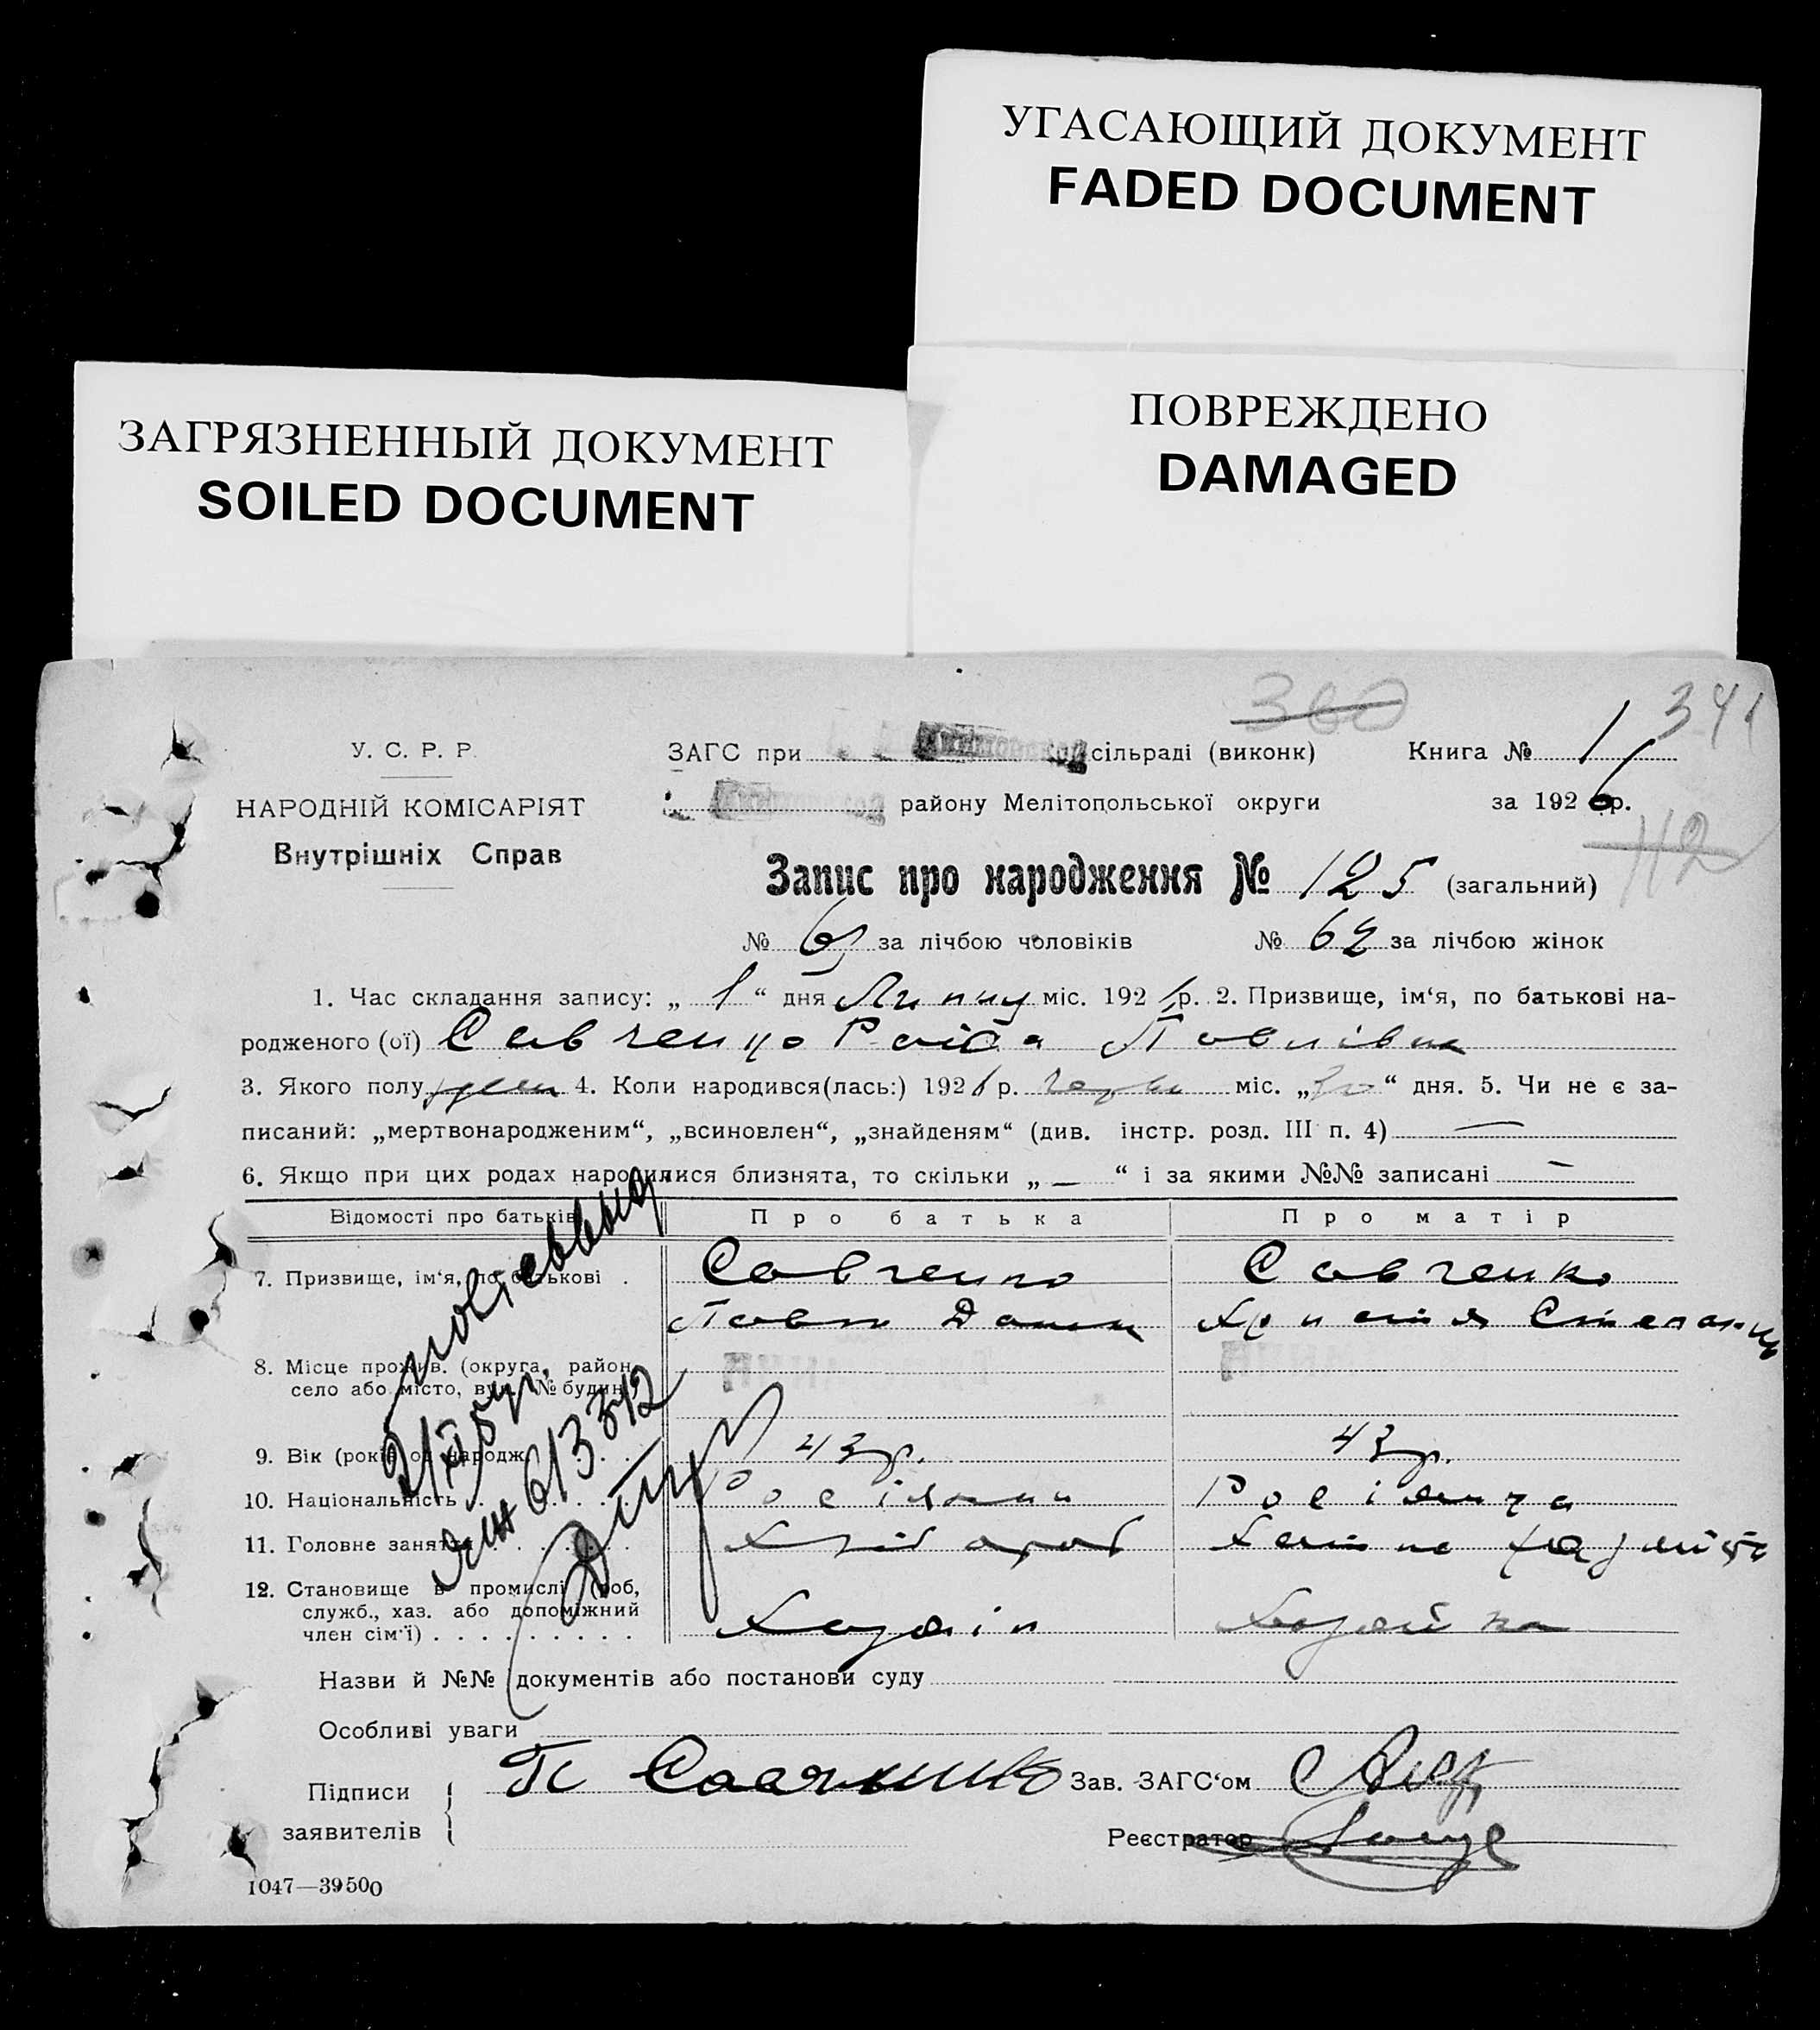 УГАСАЮЩИЙ ДОКУМЕНТ
FADED DOCUMENT
ПОВРЕЖДЕНО
DAMAGED
ЗАГРЯЗНЕННЫЙ ДОКУМЕНТ
SOILED DOCUMENT
360 341
У. С. Р. Р.
НАРОДНІЙ КОМІСАРІЯТ
Внутрішніх Справ
ЗАГС при сільраді (виконк) Книга № 1
району Мелітопольської округи за 1926 р.
112
Запис про народження № 125 (загальний)
№ за лічбою чоловіків № 62 за лічбою жінок
1. Час складання запису: „ 1 “ дня Липцу міс. 192 р. 2. Призвище, ім‘я, по батькові на-
родженого (ої) Савченко Раїса Павлівна
3. Якого полу жен 4. Коли народився(лась:) 1926 р. міс. „30“ дня. 5. Чи не є за-
писаний: „мертвонародженим“, „всиновлен“, „знайденям“ (див. інстр. розд. III п. 4) —
6. Якщо при цих родах народилися близнята, то скільки „ — “ і за якими №№ записані —
Відомості про батьків Про батька Про матір
7. Призвище, ім‘я, по батькові . Савченко Савченко
Павло Данил Христя Степанів
8. Місце прожив. (округа, район,
село або місто, вул. № будин.)
9. Вік (років од народж. 43 р. 43 р.
10. Національність Росіянин Росіянка
11. Головне заняття Хлібороб Хатне
12. Становище в промислі (роб,
служб., хаз. або допоміжний
член сім‘ї) Хазяїн Хозяйка
Назви й №№ документів або постанови суду
Особливі уваги
Підписи
заявителів
Зав. ЗАГС‘ом
Реєстратор
1047—39500